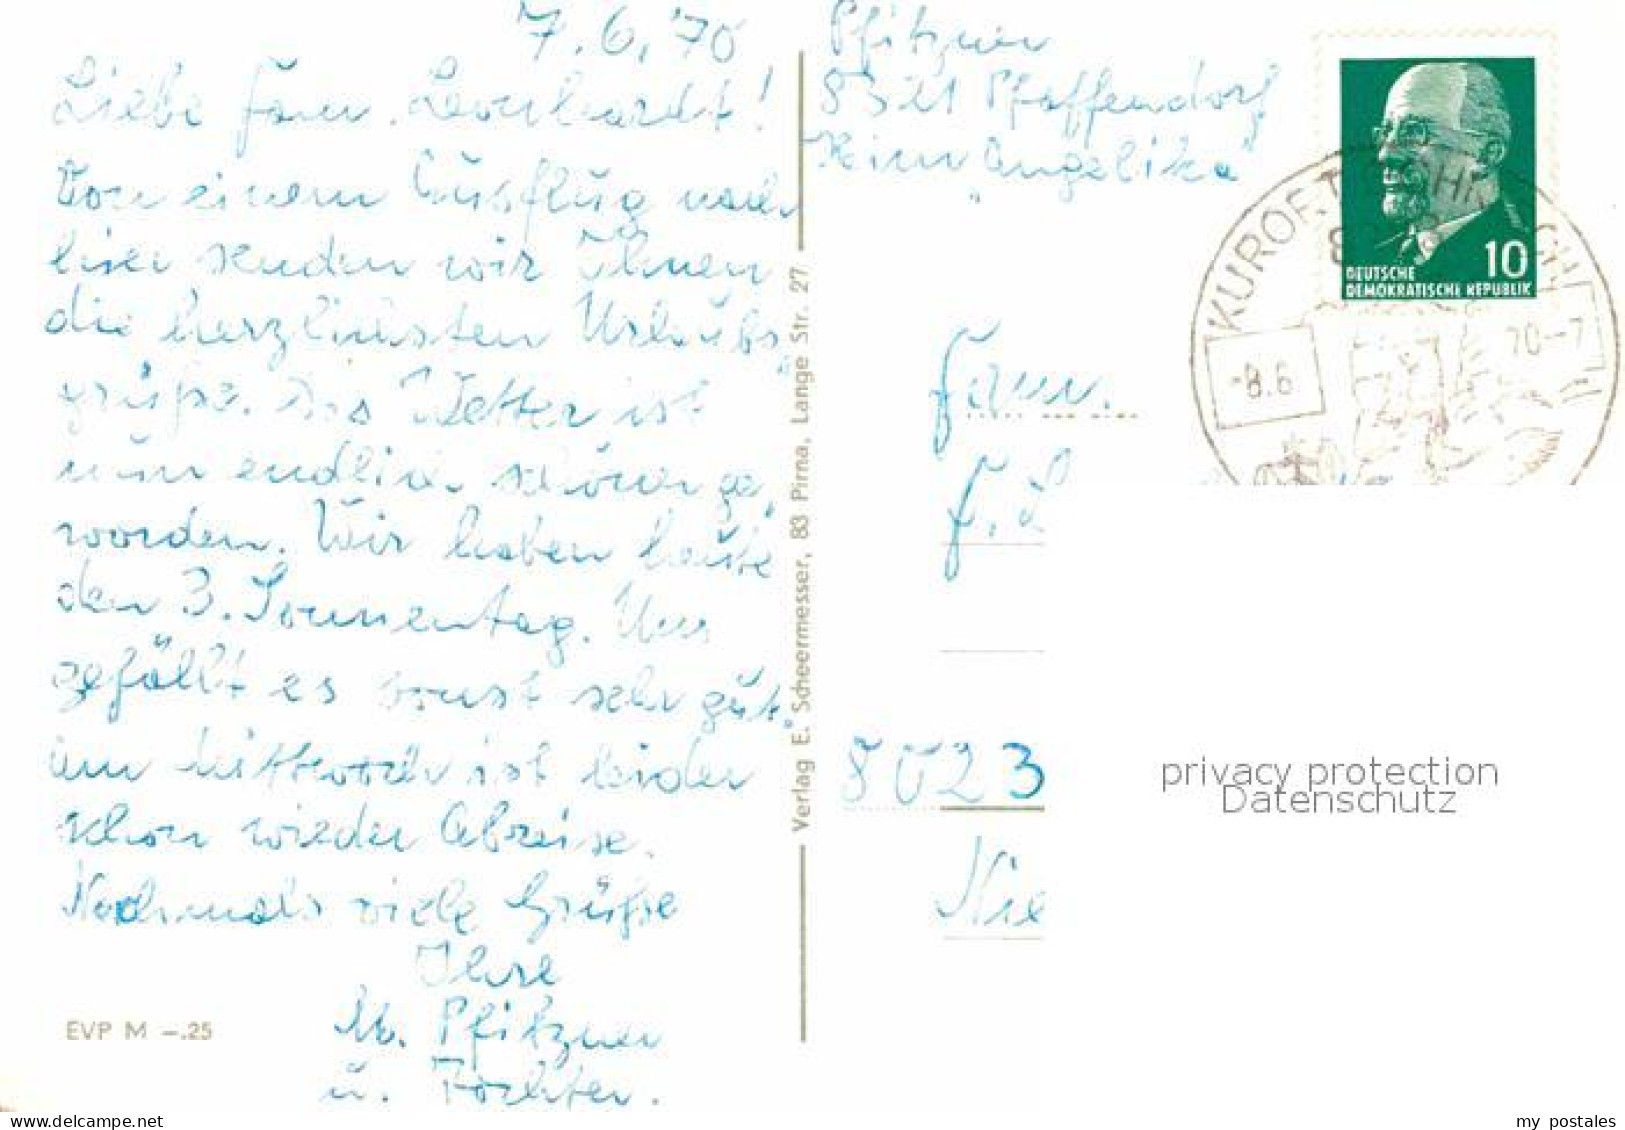 7.6.'70
Liebe Fam. Leonhardt!
Von einem Ausflug nach
hier senden wir Ihnen
die herzlichsten Urlaubs-
grüße. Das Wetter ist
nun endlich schöner ge-
worden. Wir haben heute
den 3. Sonnentag. Uns
gefällt es sonst sehr gut.
Am Mittwoch ist leider
schon wieder Abreise.
Nochmals viele Grüße
Ihre
M. Pfitzner
u. Tochter.
EVP M –.25
Verlag E. Scheermesser, 83 Pirna, Lange Str. 27
Pfitzner
8321 Pfaffendorf
Heim „Angelika"
10
DEUTSCHE
DEMOKRATISCHE REPUBLIK
KURORT
-8.6
70-7
Fam.
F. L
8023
Nie
privacy protection
Datenschutz
www.delcampe.net
my_postales